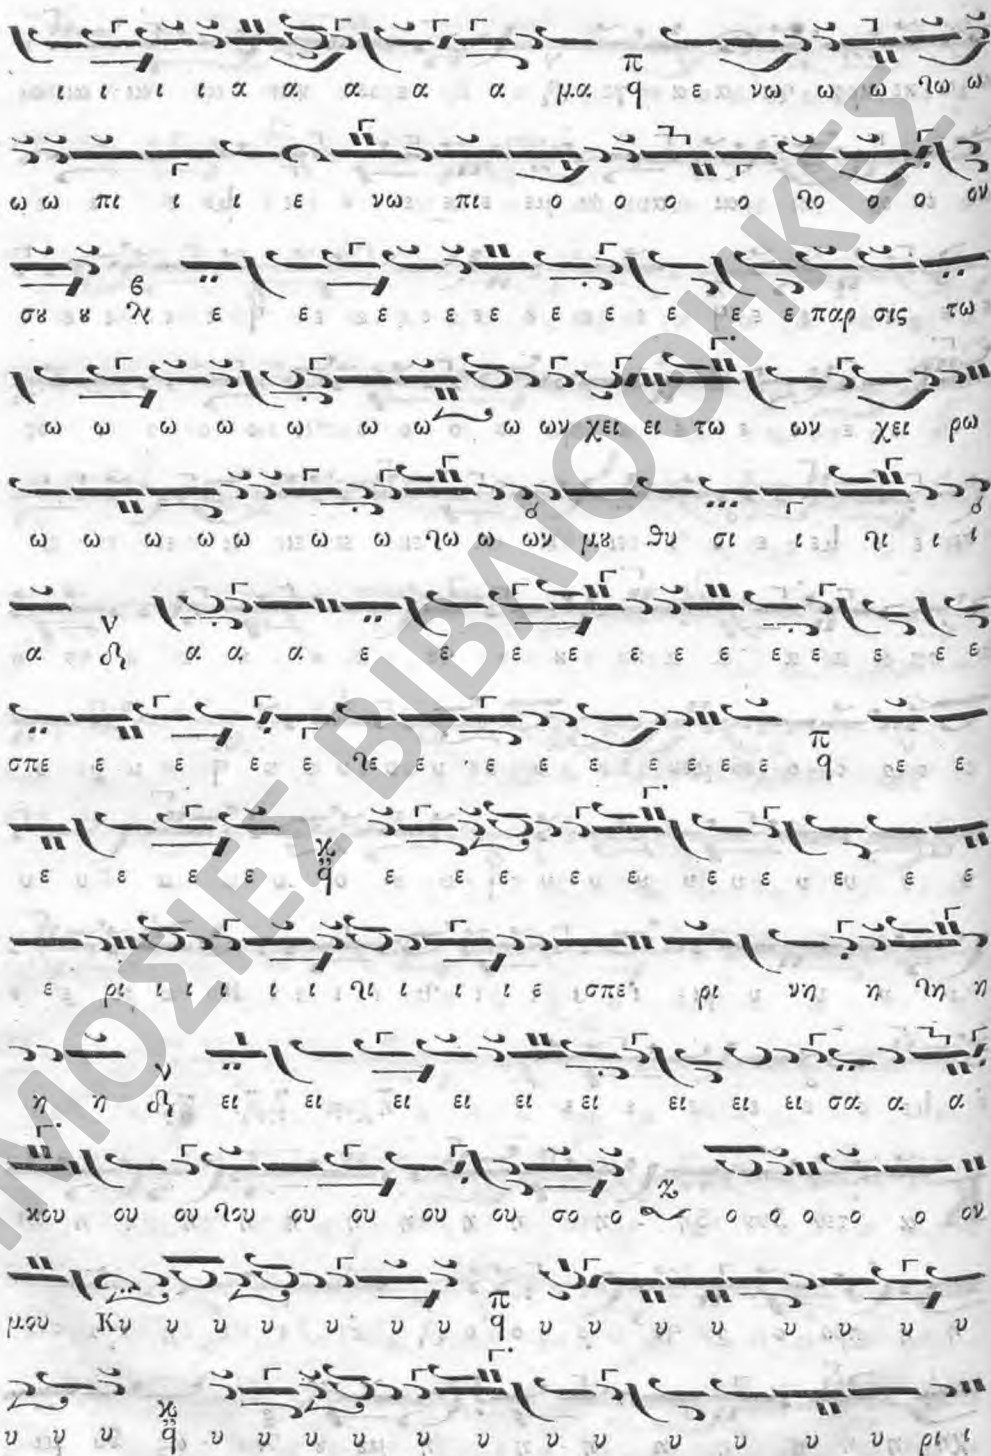 ι ι ι ι α α α α α μα π q ε νω ω ω γω ω
ω ω πι ι ι ε νω πι ο ο ο ο γο ο ο ον
σȣ ȣ ϐ ε ε ε ε ε ε ε ε γε ε παρ σις τω
ω ω ω ω ω ω ω ω ων χει ει τω ων χει ρω
ω ω ω ω ω ω ω γω ω ων μȣ θυ σι ι γι ι ι
α ν α α α ε ε ε ε ε ε ε ε ε ε ε ε
σπε ε ε ε ε γε ε ε ε ε ε ε ε ε π q ε ε
ε ε ε ε ϰ q ε ε ε ε ε ε ε ε ε ε
ε ρι ι ι ι ι ι γι ι ι ι ε σπε ρι νη η γη η
η η ν ει ει ει ει ει ει ει ει ει σα α α
κου ου ου γου ου ου ου ου σο ο ζ ο ο ο ο ο ον
μου Κυ υ υ υ υ υ υ π q υ υ υ υ υ υ υ υ
υ υ υ ϰ q υ υ υ υ υ υ υ υ υ υ υ υ ρι ι
ΔΗΜΟΣΙΕΣ ΒΙΒΛΙΟΘΗΚΕΣ